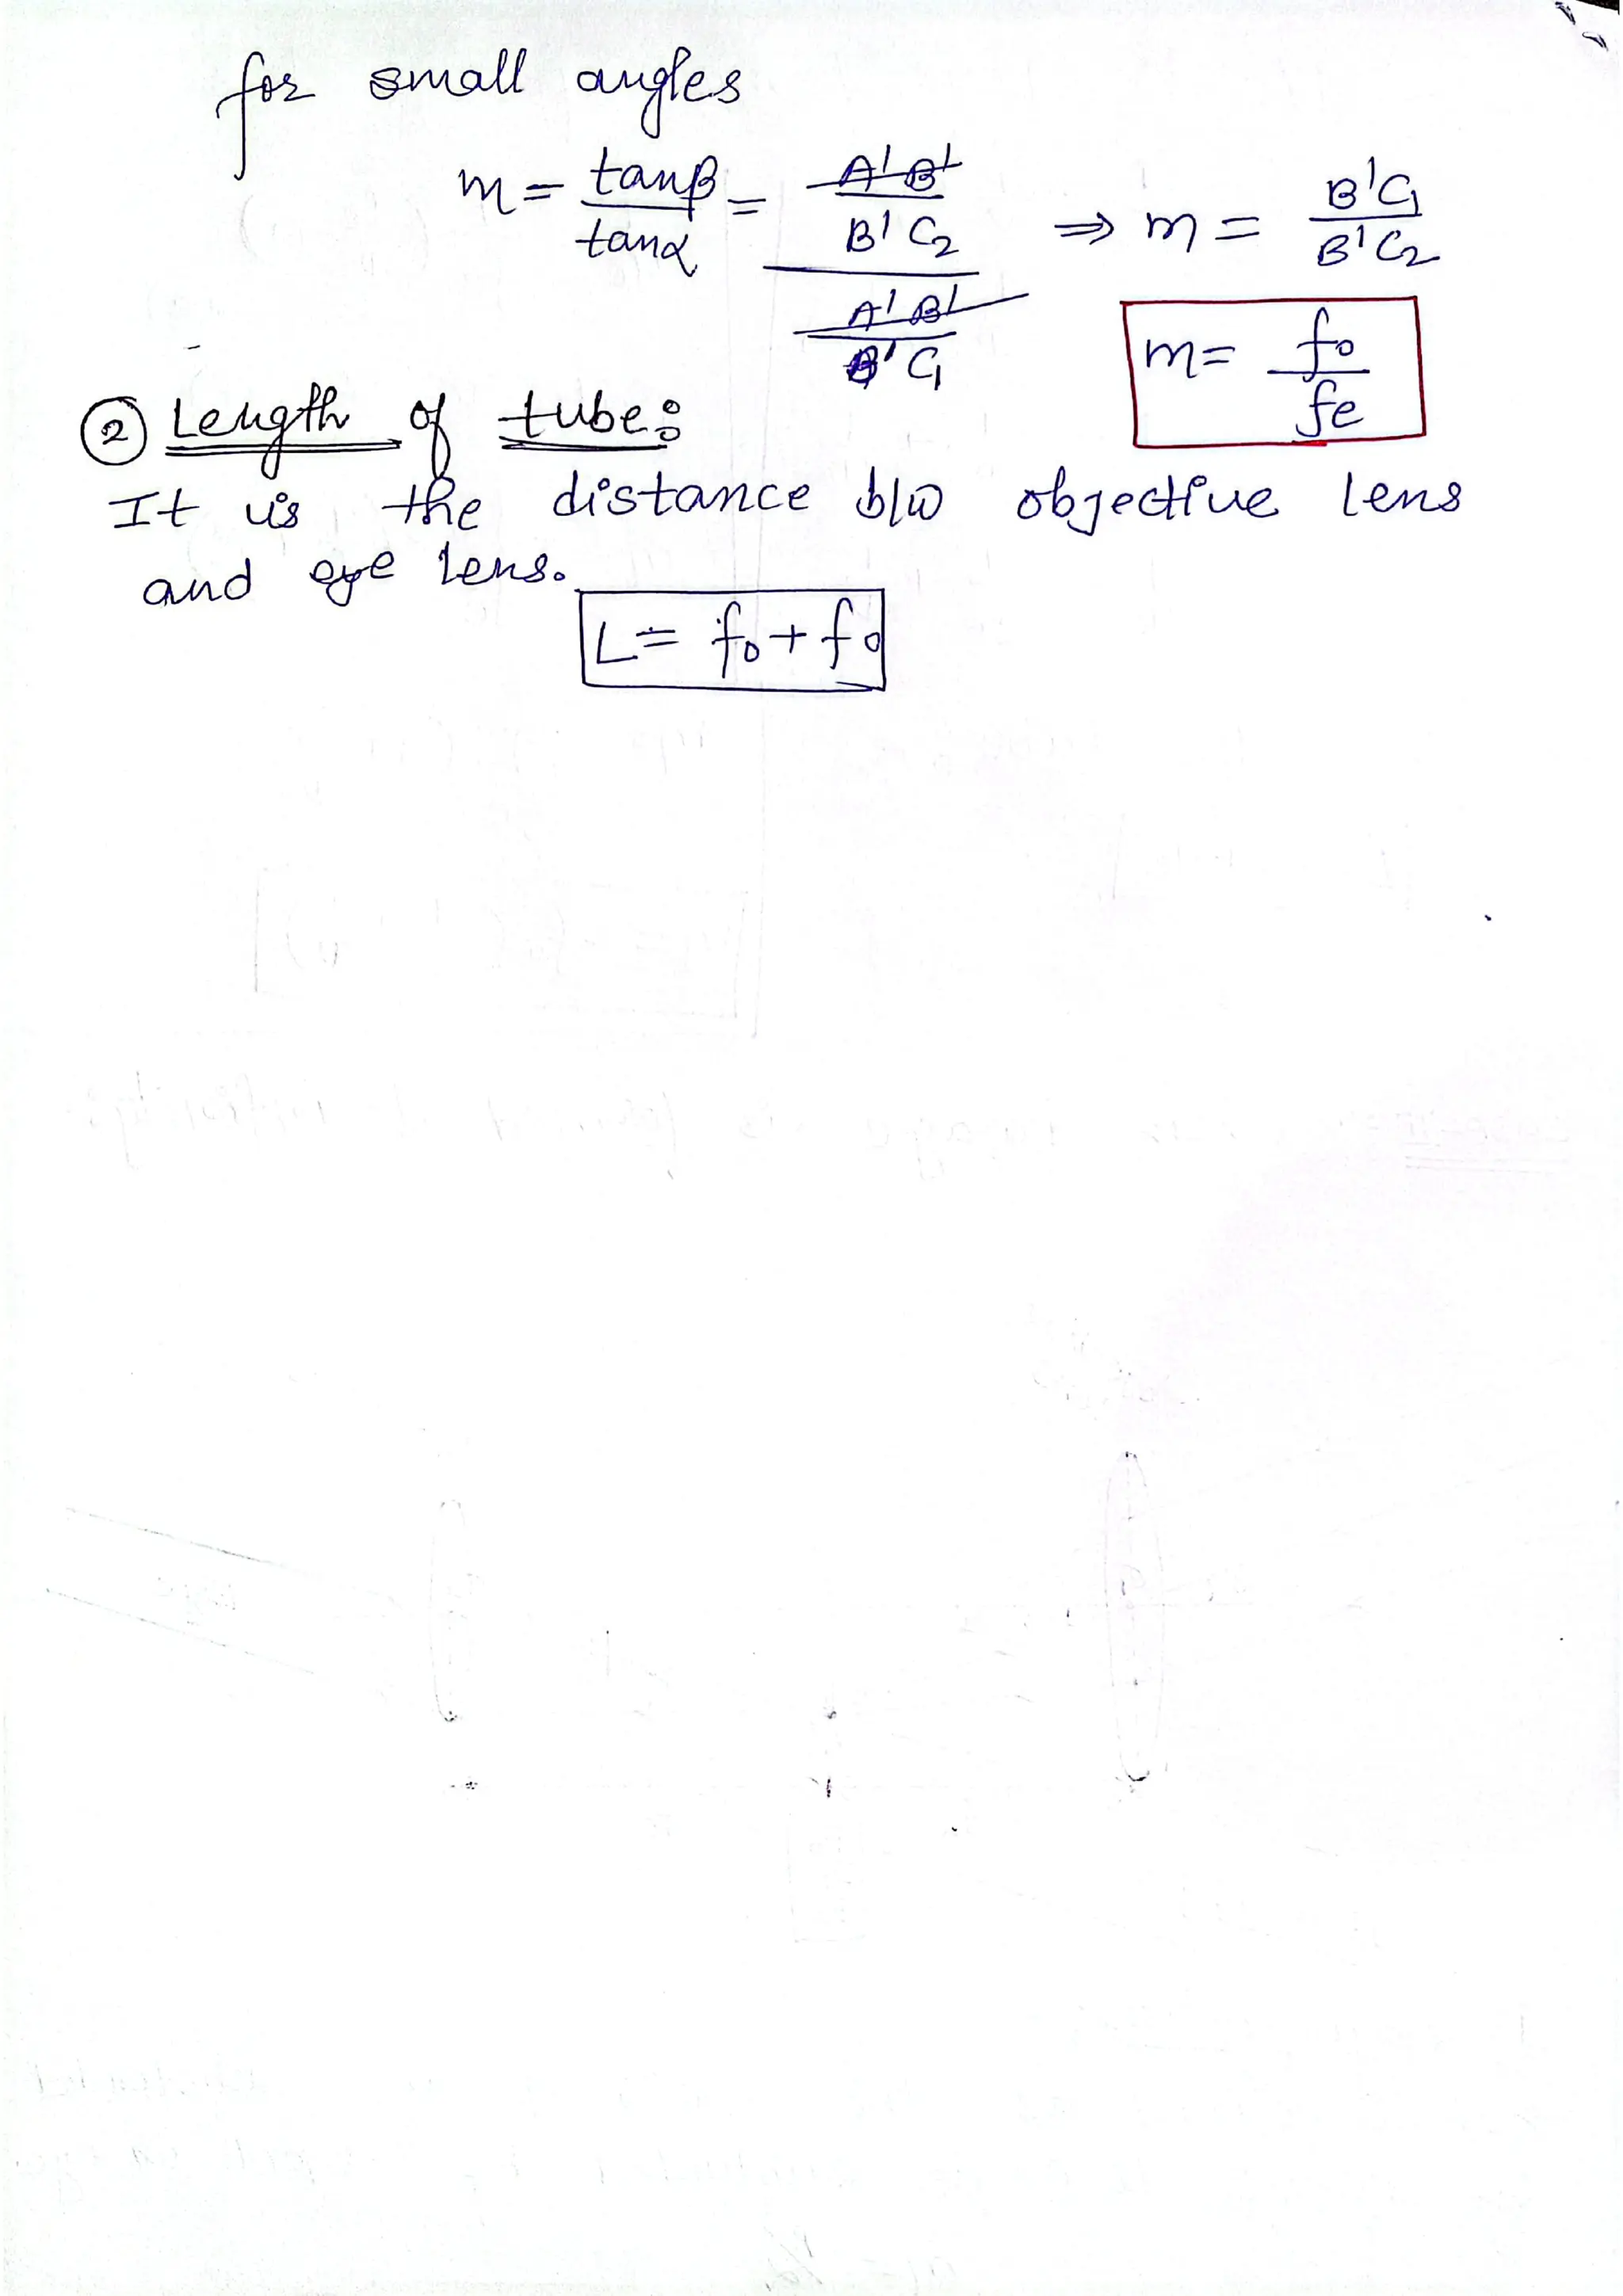 for small angles
m = tanβ / tanα = (A'B' / B'C₂) / (A'B' / B'C₁) ⇒ m = B'C₁ / B'C₂
m = fo / fe
② Length of tube:
It is the distance b/w objective lens
and eye lens.
L = fo + fo